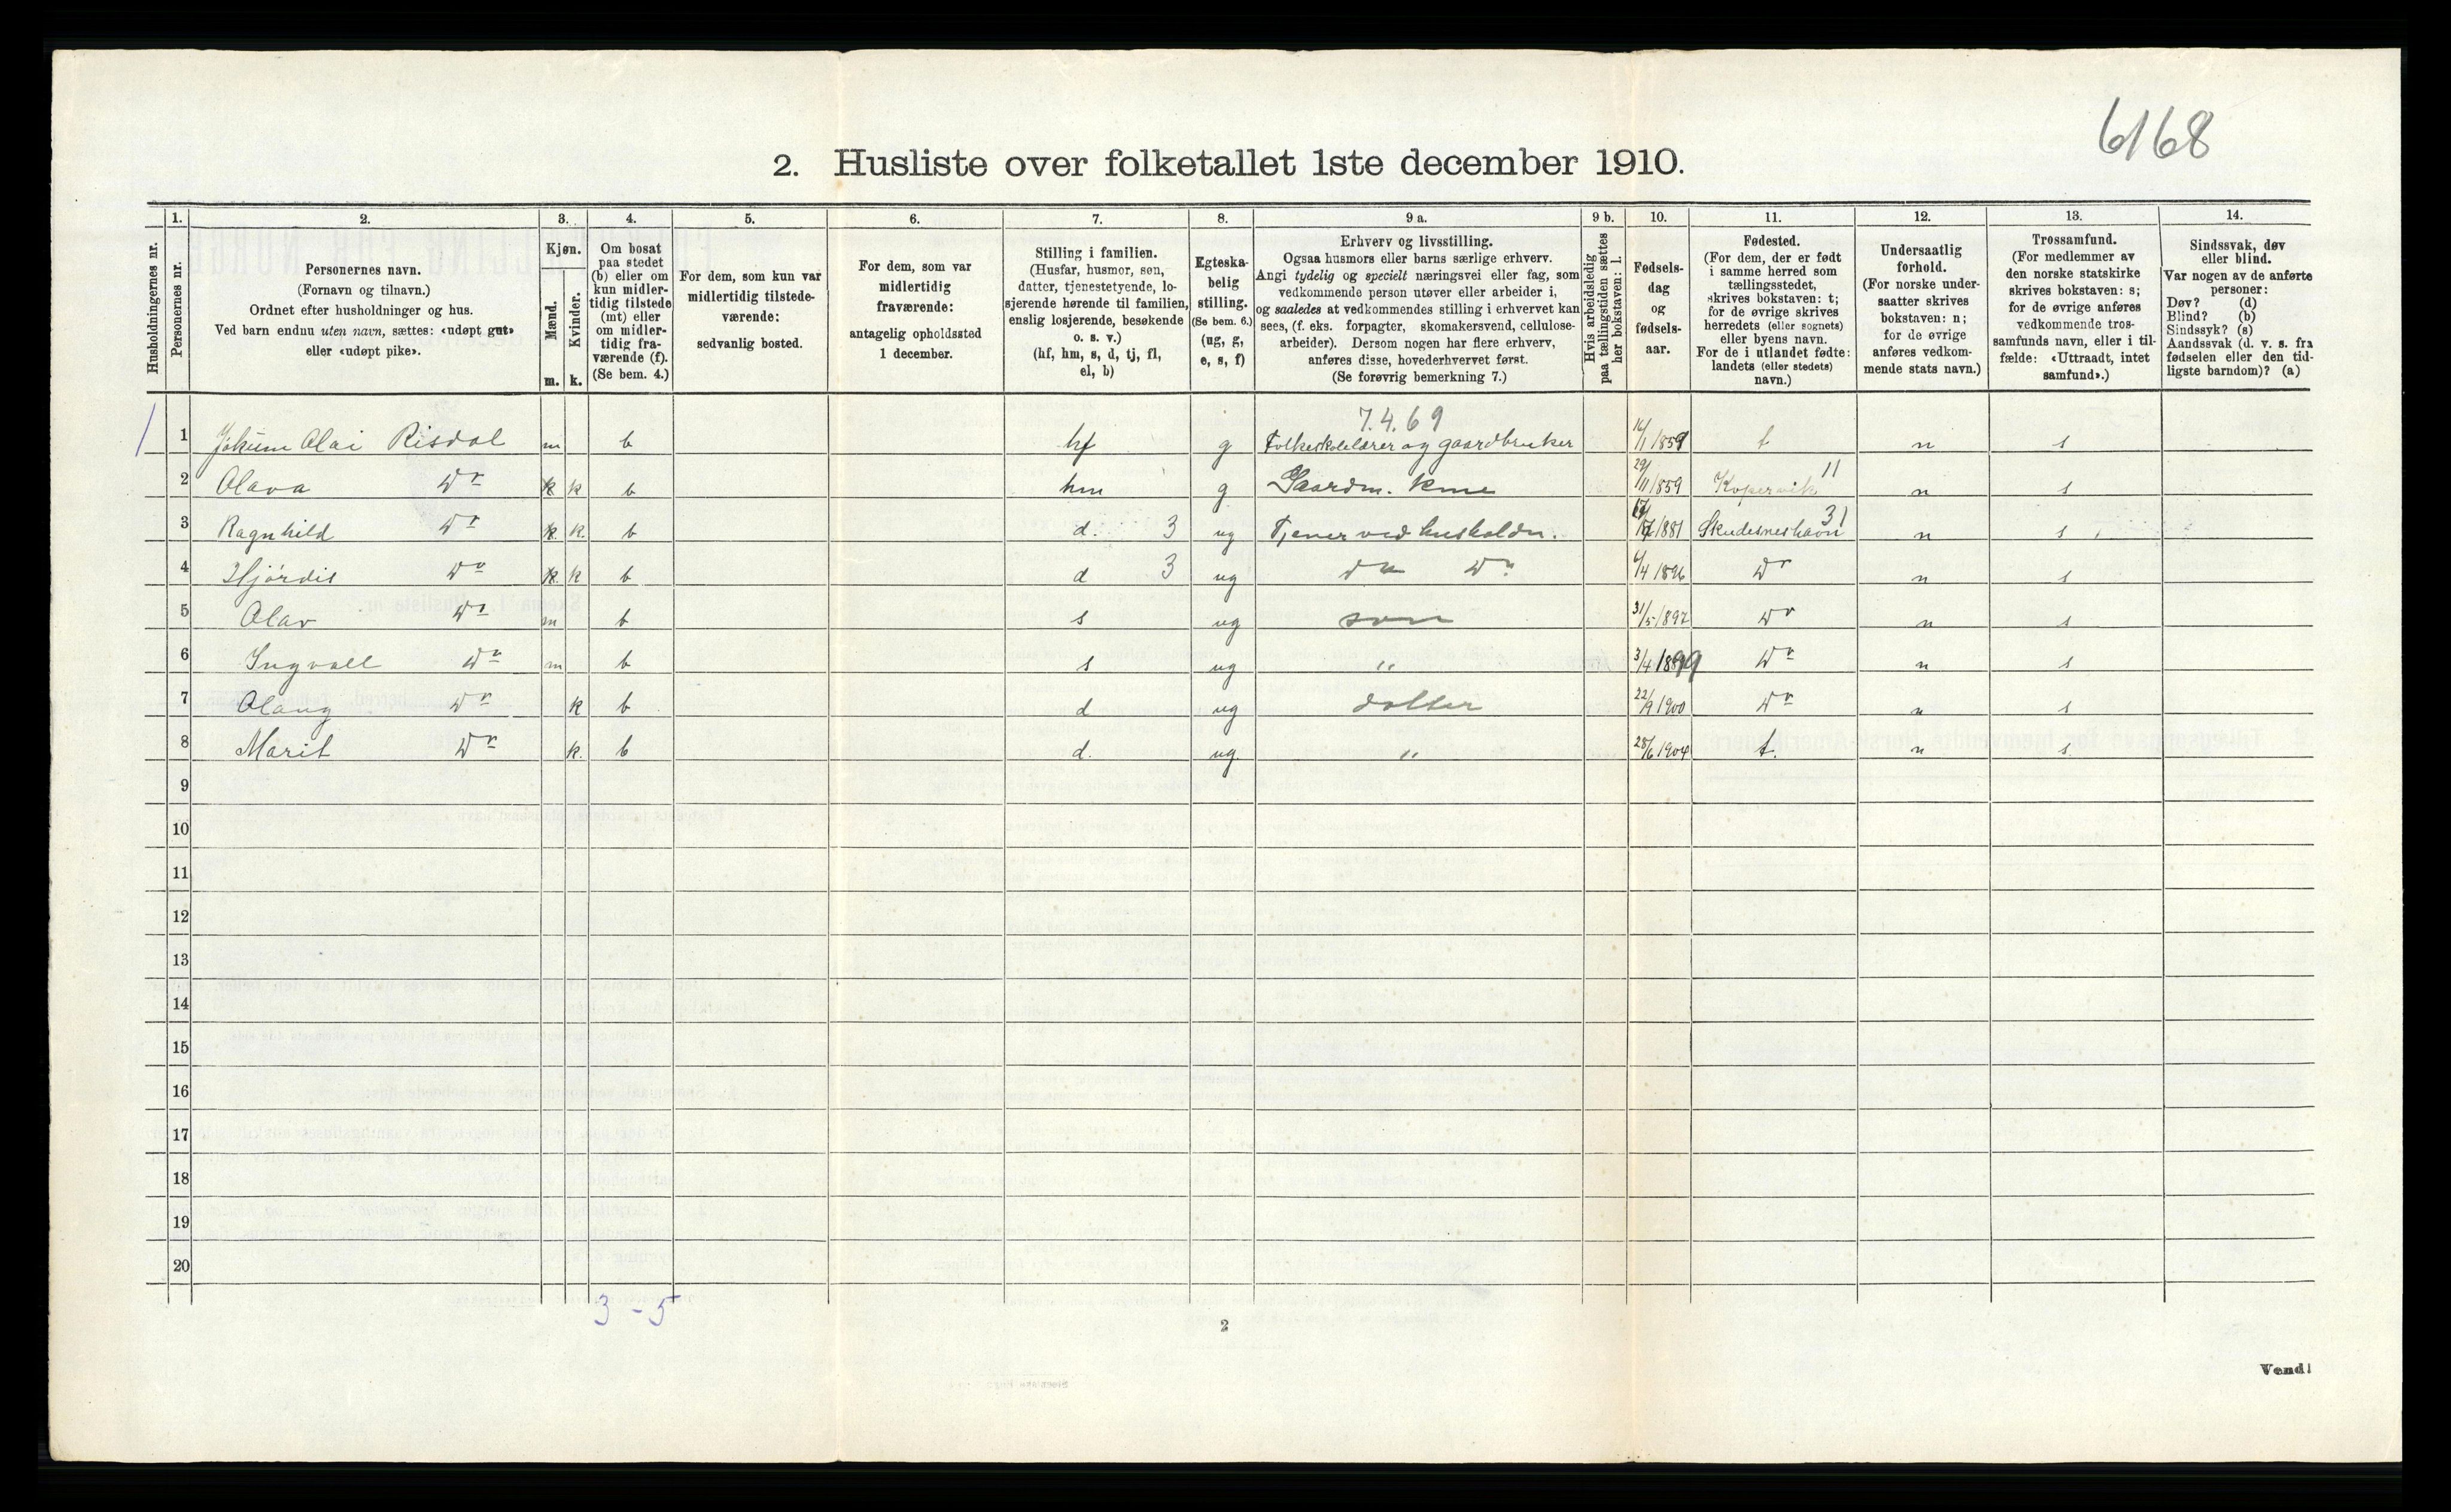 6168
2. Husliste over folketallet 1ste december 1910.
Husholdningernes nr.
1. Personernes nr.
2. Personernes navn.
(Fornavn og tilnavn.)
Ordnet efter husholdninger og hus.
Ved barn endnu uten navn, sættes: «udøpt gut»
eller «udøpt pike».
3. Kjøn.
Mænd. m.
Kvinder. k.
4. Om bosat
paa stedet
(b) eller om
kun midler-
tidig tilstede
(mt) eller
om midler-
tidig fra-
værende (f).
(Se bem. 4.)
5. For dem, som kun var
midlertidig tilstede-
værende:
sedvanlig bosted.
6. For dem, som var
midlertidig
fraværende:
antagelig opholdssted
1 december.
7. Stilling i familien.
(Husfar, husmor, søn,
datter, tjenestetyende, lo-
sjerende hørende til familien,
enslig losjerende, besøkende
o. s. v.)
(hf, hm, s, d, tj, fl,
el, b)
8. Egteska-
belig
stilling.
(Se bem. 6.)
(ug, g,
e, s, f)
9 a. Erhverv og livsstilling.
Ogsaa husmors eller barns særlige erhverv.
Angi tydelig og specielt næringsvei eller fag, som
vedkommende person utøver eller arbeider i,
og saaledes at vedkommendes stilling i erhvervet kan
sees, (f. eks. forpagter, skomakersvend, cellulose-
arbeider). Dersom nogen har flere erhverv,
anføres disse, hovederhvervet først.
(Se forøvrig bemerkning 7.)
9 b. Hvis arbeidsledig
paa tællingstiden sættes
her bokstaven: l.
10. Fødsels-
dag
og
fødsels-
aar.
11. Fødested.
(For dem, der er født
i samme herred som
tællingsstedet,
skrives bokstaven: t;
for de øvrige skrives
herredets (eller sognets)
eller byens navn.
For de i utlandet fødte:
landets (eller stedets)
navn.)
12. Undersaatlig
forhold.
(For norske under-
saatter skrives
bokstaven: n;
for de øvrige
anføres vedkom-
mende stats navn.)
13. Trossamfund.
(For medlemmer av
den norske statskirke
skrives bokstaven: s;
for de øvrige anføres
vedkommende tros-
samfunds navn, eller i til-
fælde: «Uttraadt, intet
samfund».)
14. Sindssvak, døv
eller blind.
Var nogen av de anførte
personer:
Døv? (d)
Blind? (b)
Sindssyk? (s)
Aandssvak (d. v. s. fra
fødselen eller den tid-
ligste barndom)? (a)
7.4.69
1 1 Jokum Olai Risdal m b hf g Folkeskolelærer og gaardbruker 16/1 1859 t n s
11
2 Olava Do k k b hm g Gaardm. kone 29/11 1859 Kopervik n s
31
3 Ragnhild Do k. k. b d. 3 ug Tjener ved husholdn. 1881 Skudesneshavn n s
4 Hjördis Do k k b d 3 ug do Do /4 1896 Do n s
5 Olav Do m b s ug søn 31/5 1897 Do n s
6 Ingvall Do m b s ug " 3/4 1899 Do n s
7 Olaug Do k b d ug dotter 22/9 1900 Do n s
8 Marit Do k. b d. ug. " 28/6 1904 t. n s.
9
10
11
12
13
14
15
16
17
18
19
20
3 - 5
2
Vend!